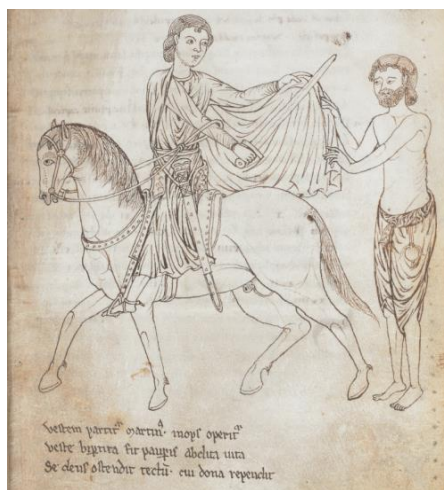 vestem partitᷣ martinꝰ· inops operitᷣ
veste fit pauꝑis abolita uita
Se deus ostendit tectū· cui dona rependit